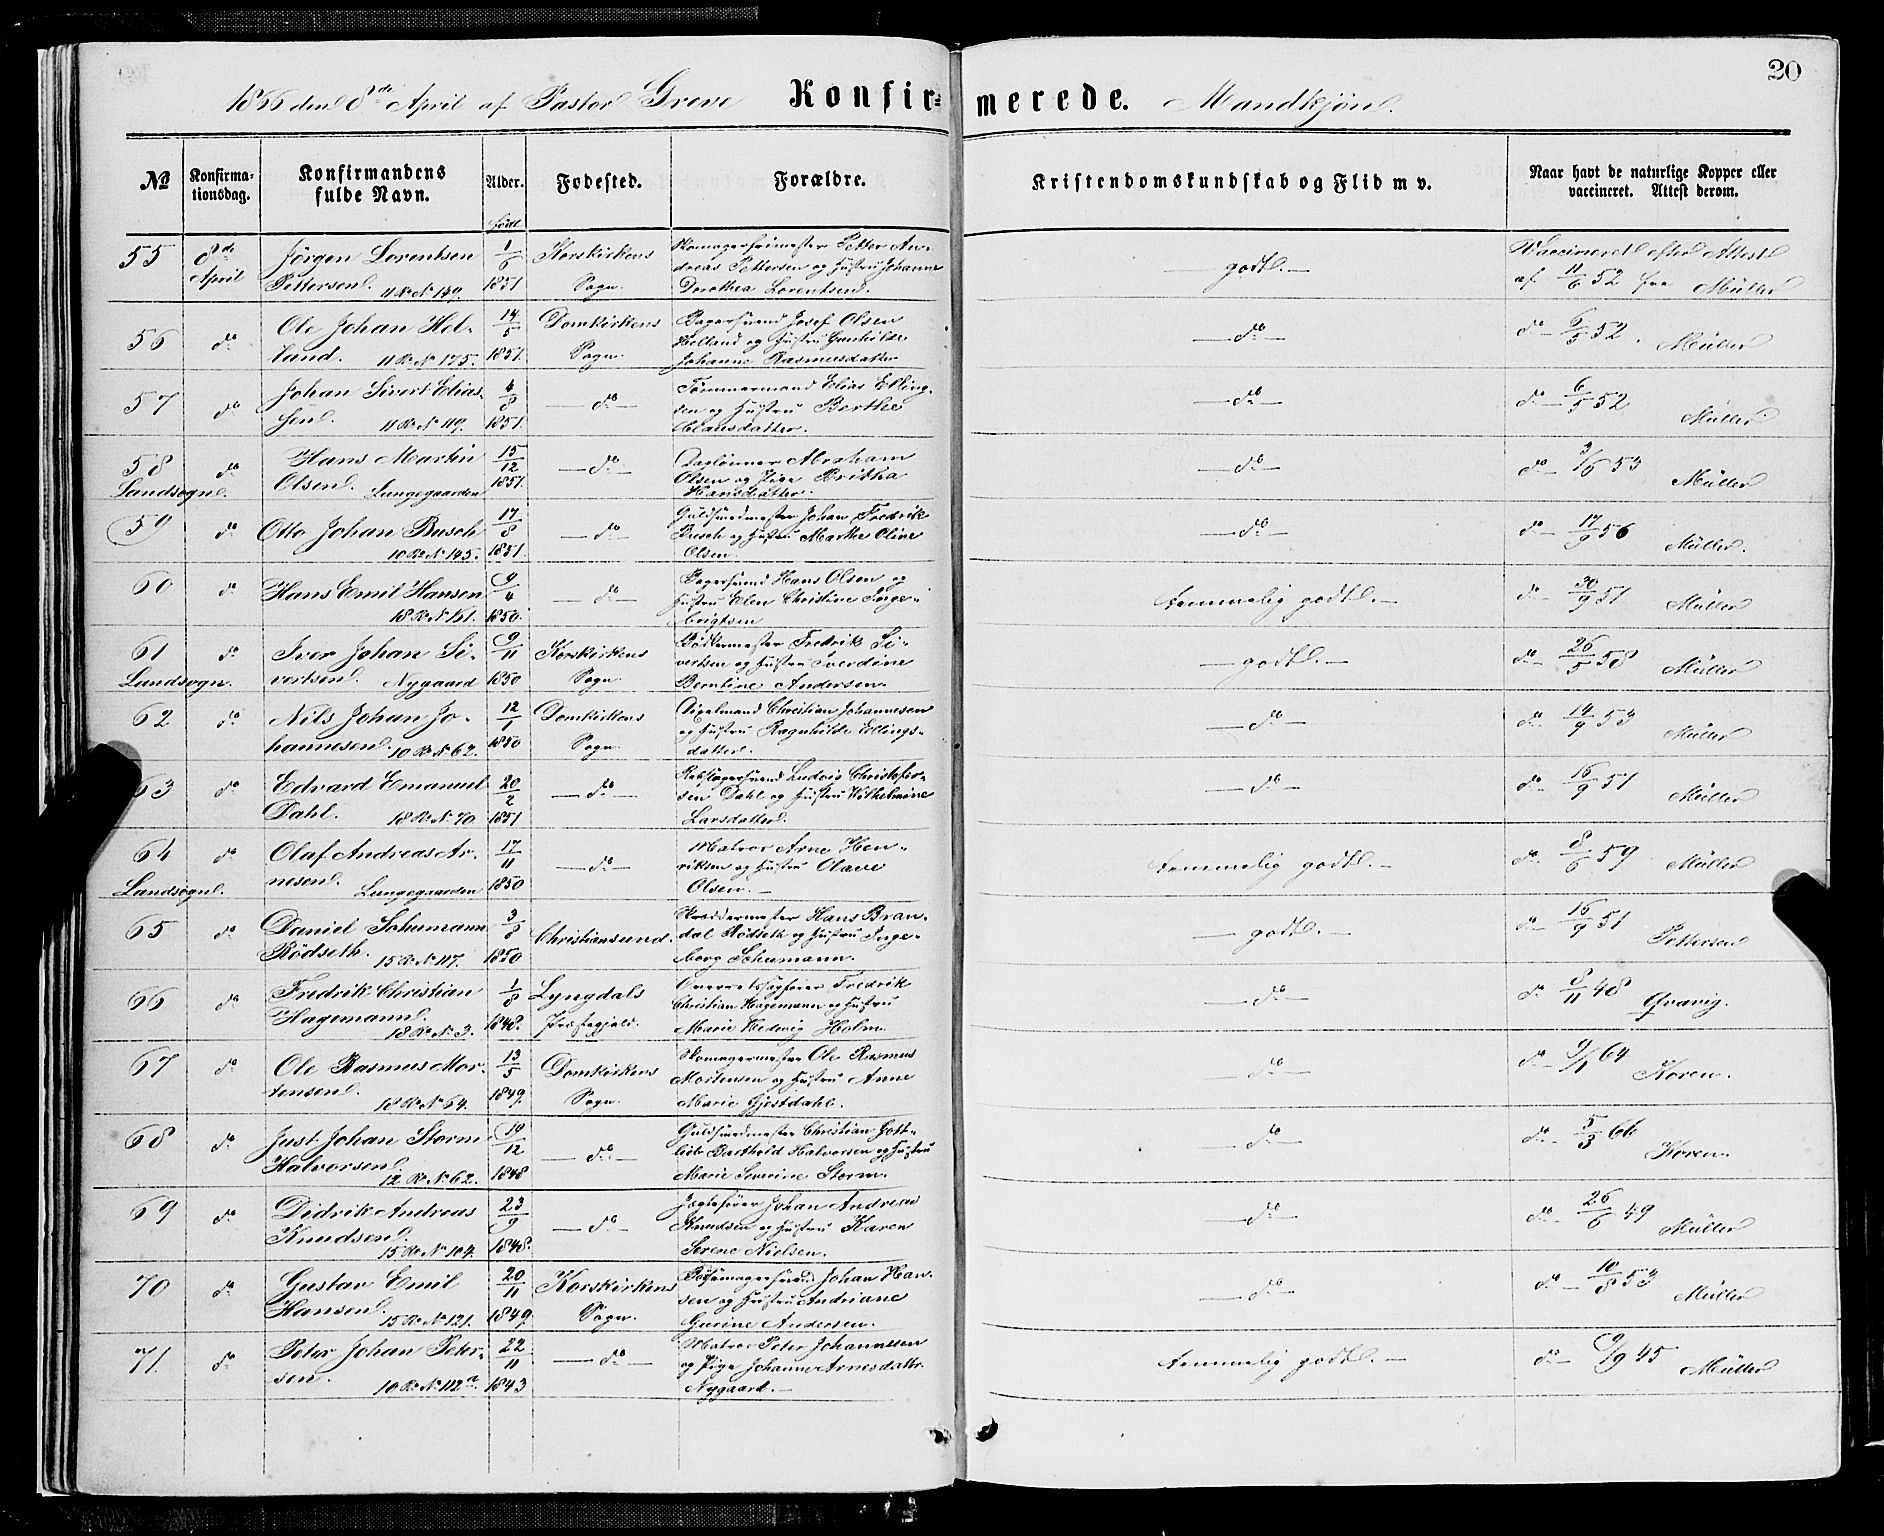 20
1866 den 8de April af Pastor Greve Konfir- merede. Mandkjøn.
№ Konfirma-tionsdag. Konfirmandens fulde Navn. Alder. Fødested. Forældre. Kristendomskundskab og Flid m v. Naar havt de naturlige Kopper eller vaccineret. Attest derom.
født
55 8de Jørgen Lorentsen 1/6 Korskirkens Skomagersvimester Petter An-
April Pettersen. 11 R. No 149. 1851 Sogn. dreas Pettersen og Hustru Johanne — godt. — Vaccineret efter Attest
Dorothea Lorentsen. af 11/6 52 fra Müller
56 do Ole Johan Hel- 14/5 Domkirkens Bagersvend Josef Olsen — do — do — 6/5 52. Müller
land. 11 R. No 175. 1851. Sogn. Helland og Hustru Gunhilde
Johanne Rasmusdatter
57 do Johan Sivert Elias- 4/8 — do — Tømmermand Elias Elling- — do — do — 6/5 52 Müller
sen. 11 R. No 119. 1851. sen og Hustru Berthe
Clausdatter.
58 do Hans Martin 15/12 — do — Dagleønner Abraham — do — do — 3/6 53 Müller
Landsogn. Olsen. Lungegaarden 1851. Olsen og Pige Britha
Hansdatter.
59 do Otto Johan Busch 17/8 — do — Guldsmedmester Johan Fredrik — do — do — 17/9 56 Müller.
10 R. No 145. 1851. Busch og Hustru Marthe Oline
Olsen
60 do Hans Emil Hansen 9/4 — do — Bagersvend Hans Olsen og temmelig godt. — do — 30/9 51 Müller
18 R. No 161. 1850. Hustru Elen Christine Inge-
brigtsen
61 do Iver Johan Si- 9/11 Korskirkens Bødkermester Fredrik Si- — godt. — do — 26/5 58 Müller
Landsogn. vertsen. Nygaard 1850 Sogn. vertsen og Hustru Sverdine
Berntine Andersen.
62 do Nils Johan Jo- 12/1 Domkirkens Digelmand Christian Johannesen — do — do — 14/9 53 Müller
hannesen. 10 R. No 62. 1850 Sogn. og Hustru Ragnhilde Ellings-
datter.
63 do Edvard Emanuel 20/2 — do — Rebslagersvend Ludvig Christofer- — do — do — 16/9 51 Müller
Dahl. 18 R. No 70. 1851 sen Dahl og Hustru Wilhelmine
Larsdatter.
64 do Olaf Andreas Ar- 17/11 — do — Matros Arne Hen- temmelig godt. — do — 8/6 59 Müller
Landsogn. nesen. Lungegaarden 1850 riksen og Hustru Olave
Olsen. —
65 do Daniel Schumann 3/8 Christiansund. Skræddermester Hans Bran- — godt. — do — 16/9 51 Pettersen
Rødseth. 15 R. No 117. 1850 dal Rødseth og Hustru Inge-
borg Schumann.
66 do Fredrik Christian 1/8 Lyngdals Overretssagfører Fredrik — do — do 8/11 48 Qvavig.
Hagemann. 18 R. No 3. 1848. Præstegjeld. Christian Hagemann og Hustru
Marie Hedvig Holm.
67 do Ole Rasmus Mor- 13/5 Domkirkens Skomagermester Ole Rasmus — do — do — 9/1 64 Koren.
tensen. 18 R. No 64. 1849. Sogn. Mortensen og Hustru Anne
Marie Gjestdahl.
68 do Just Johan Storm 19/12 — do — Guldsmedmester Christian Gott- — do — do — 5/3 66 Koren.
Halvorsen. 12 R. No 62. 1848 lieb Barthold Halvorsen og Hustru
Marie Severine Storm.
69 do Didrik Andreas 23/9 — do — Jægtefører Johan Andreas — do — do — 26/6 49 Müller
Knudsen. 15 R. No 104. 1848. Knudsen og Hustru Karen
Serene Nielsen.
70 do Gustav Emil 20/11 Korskirkens Bøssemagersvend Johan Han- — do — do — 10/8 53 Müller
Hansen. 15 R. No 121. 1849. Sogn. sen og Hustru Andriane
Gurine Andersen.
71. do Peter Johan Peter- 22/11 — do — Matros Peter Johannesen temmelig godt. — do — 9/9 45 Müller
sen. 10 R. No 112a 1843 og Pige Johanne Arnesdatter
Nygaard. —